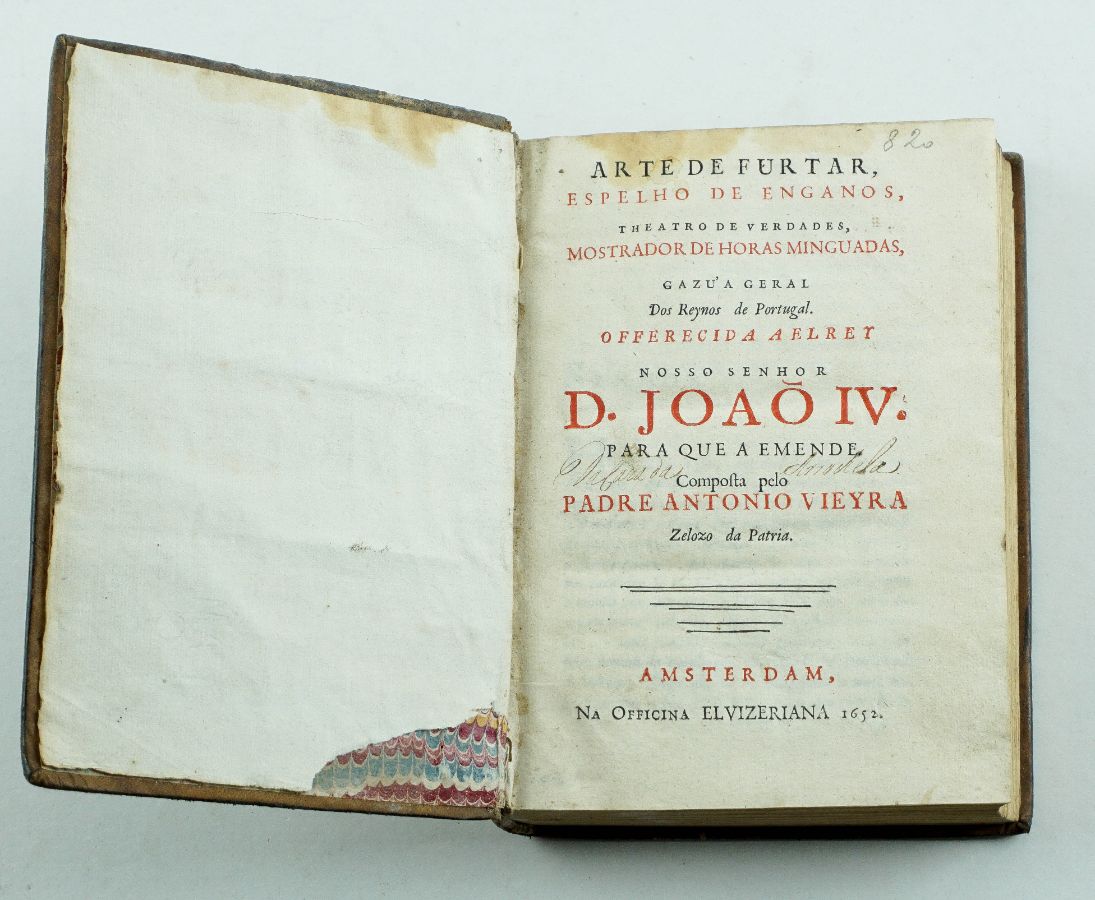 820
ARTE DE FURTAR,
ESPELHO DE ENGANOS,
THEATRO DE VERDADES,
MOSTRADOR DE HORAS MINGUADAS,
GAZU'A GERAL
Dos Reynos de Portugal.
OFFERECIDA A ELREY
NOSSO SENHOR
D. JOAÕ IV.
PARA QUE A EMENDE.
Compoſta pelo
PADRE ANTONIO VIEYRA
Zelozo da Patria.
AMSTERDAM,
NA OFFICINA ELVIZERIANA 1652.